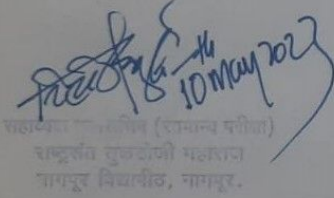 10 May 2023
सहाय्यक कुलसचिव (सामान्य परीक्षा)
राष्ट्रसंत तुकडोजी महाराज
नागपूर विद्यापीठ, नागपूर.